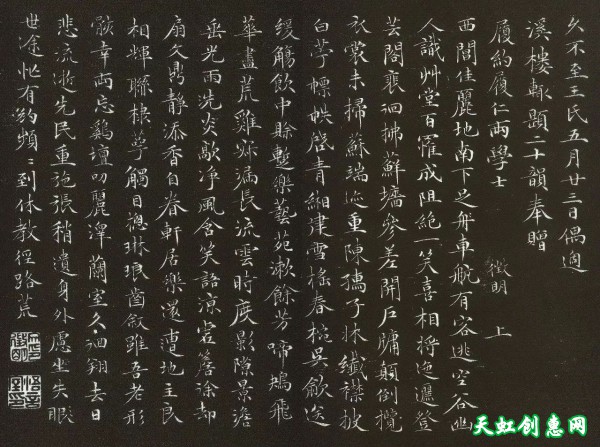 久不至王氏五月廿三日偶過
溪樓輙題二十韻奉贈
履約履仁兩學士
徵明 上
西閶佳麗地南下足舟車航有客逃空谷幽
人識艸堂百罹成阻絕一笑喜相將迤邐登
芸閣裵徊拂蘚牆參差開戶牖顛倒攬
衣裳未掃蘇端迹重陳孺子牀纖襟披
白苧幖帙啓青緗建雪搖春椀吳歈送
緩觴飲中賒樂藝苑漱餘芳啼鴂飛
華盡荒雞疎漏長流雲時度影隙景澹
垂光雨洗炎歊淨風含笑語涼詹涂却
扇久鼎靜添香自眷軒居樂還遭地主良
相輝聯棣萼觸目總琳琅齒敘雖吾老形
骸幸兩忘鷄壇叨麗澤蘭室久洄翔去日
悲流逝先民重弛張稍遺身外慮坐失眼
世途忙有約頻頻到休教徑路荒
天虹创惠网